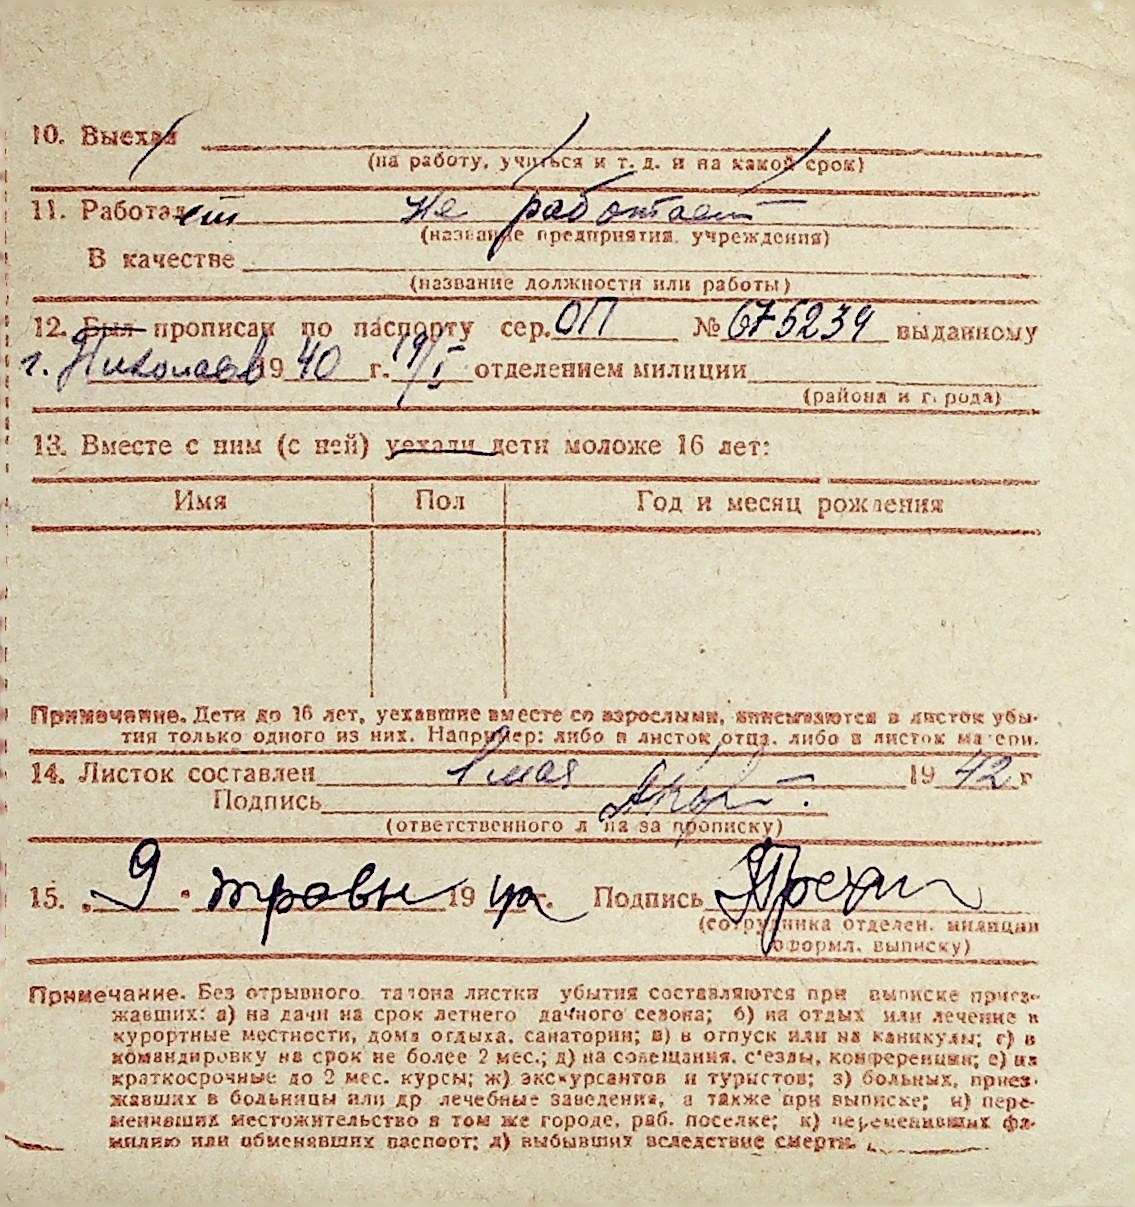 10. Выехал
(на работу, учиться и т. д. и на какой срок)
11. Работает не работает
(название предприятия, учреждения)
В качестве
(название должности или работы)
12. Был прописан по паспорту сер. ОП № 675239 выданному
г. Николаев 1940 г. 19/I отделением милиции
(района и города)
13. Вместе с ним (с ней) уехали дети моложе 16 лет:
Имя Пол Год и месяц рождения
Примечание. Дети до 16 лет, уехавшие вместе со взрослыми, вписываются в листок убы-
тия только одного из них. Например: либо в листок отца, либо в листок матери.
14. Листок составлен 1 мая 1942 г
Подпись
(ответственного лица за прописку)
15. „9" травн 1942 г. Подпись
(сотрудника отделен. милиции
оформл. выписку)
Примечание. Без отрывного талона листки убытия составляются при выписке приез-
жавших: а) на дачи на срок летнего дачного сезона; б) на отдых или лечение в
курортные местности, дома отдыха, санатории; в) в отпуск или на каникулы; г) в
командировку на срок не более 2 мес.; д) на совещания, с'езды, конференции; е) на
краткосрочные до 2 мес. курсы; ж) экскурсантов и туристов; з) больных, приез-
жавших в больницы или др лечебные заведения, а также при выписке; и) пере-
менивших местожительство в том же городе, раб. поселке; к) переменивших фа-
милию или обменявших паспорт; л) выбывших вследствие смерти.